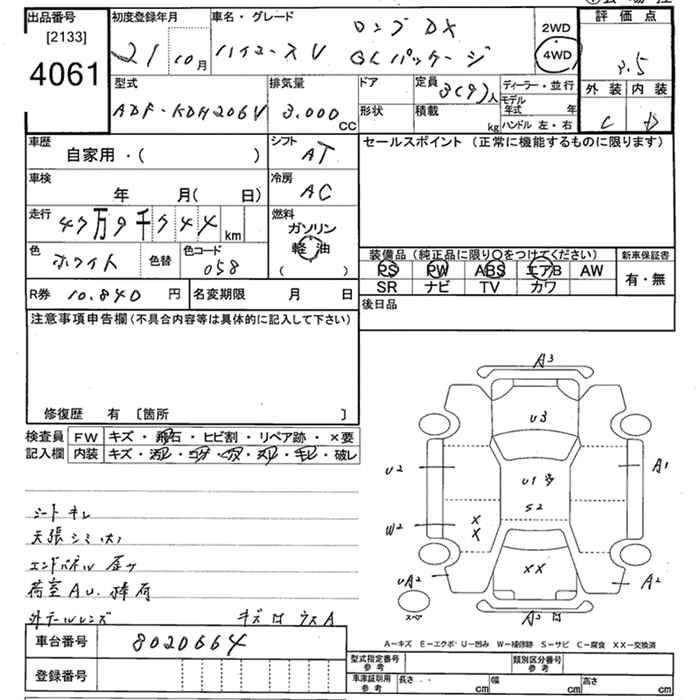 出品番号
[2133]
4061
初度登録年月
21 10月
車名・グレード
ハイエースV ロングDX GLパッケージ
2WD
4WD
評価点
3.5
外装 内装
C D
型式
ADF-KDH206V
排気量
3.000 CC
ドア
形状
定員 3(9)人
積載 kg
ディーラー・並行
モデル年式 年
ハンドル 左・右
車歴
自家用・( )
シフト
AT
セールスポイント (正常に機能するものに限ります)
車検
年 月( 日)
冷房
AC
走行
47万9千744 km
燃料
ガソリン
軽油
( )
色
ホワイト
色替
色コード
058
装備品 (純正品に限り○をつけてください)
新車保証書
PS PW ABS エアB AW
SR ナビ TV カワ
有・無
R券 10.840 円
名変期限 月 日
後日品
注意事項申告欄(不具合内容等は具体的に記入して下さい)
修復歴 有 [箇所 ]
検査員
記入欄
FW キズ・飛石・ヒビ割・リペア跡・×要
内装 キズ・汚レ・コゲ・穴・スレ・キレ・破レ
A3
U3
U2
U1
S2
A1
W2
X
X
XX
UA2
A2
スペア
A3
シートキレ
天張シミ
エンドパネル
荷室AU.
外テールレンズ キズ ウスA
A－キズ E－エクボ U－凹み W－補修跡 S－サビ C－腐食 XX－交換済
車台番号
8020664
登録番号
型式指定番号
参考
類別区分番号
参考
車庫証明用
参考
長さ cm
幅 cm
高さ cm